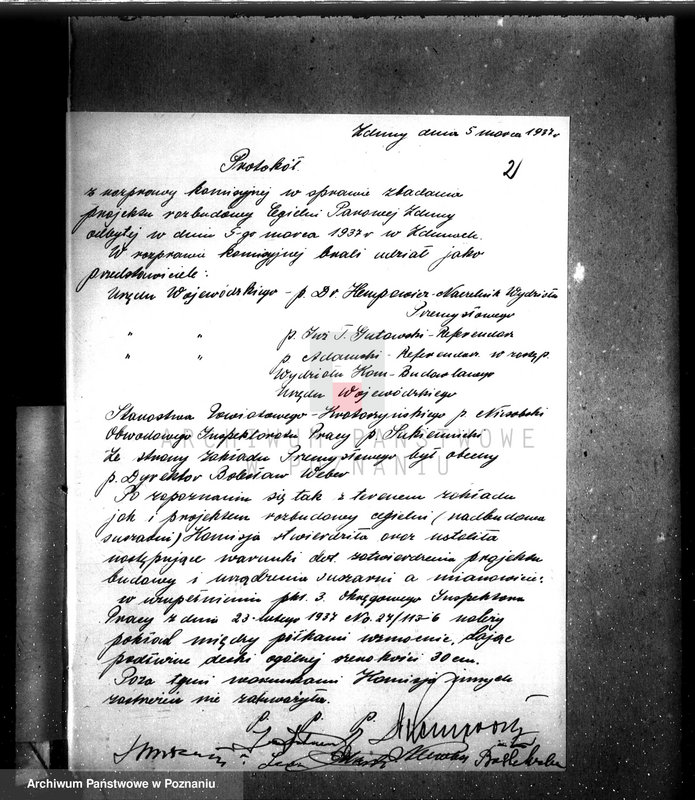 Zduny dnia 5 marca 1937 r
2)
Protokół.
z rozprawy komisyjnej w sprawie zbadania
projektu rozbudowy Cegielni Parowej Zduny
odbytej w dniu 5-go marca 1937 r w Zdunach.
W rozprawie komisyjnej brali udział jako
przedstawiciele:
Urzędu Wojewódzkiego - p. Dr. Hempowicz - Naczelnik Wydziału
Przemysłowego
" " p. Inż T. Gutowski - Referendarz
" " p Adamski - Referendarz w zast. p.
Wydziału Kom - Budowlanego
Urzędu Wojewódzkiego
Starostwa Powiatowego - Krotoszyńskiego p.
Obwodowego Inspektoratu Pracy p. Sukiennicki
Ze strony zakładu Przemysłowego był obecny
p. Dyrektor Bolesław Weber
Po zapoznaniu się tak z terenem zakładu
jak i projektem rozbudowy cegielni (nadbudowa
suszarni) Komisja stwierdziła oraz ustaliła
następujące warunki dot. zatwierdzenia projektu
budowy i urządzenia suszarni a mianowicie:
w uzupełnieniu pkt. 3. Okręgowego Inspektora
Pracy z dnia 23 lutego 1937 No. 27/113-6 należy
pokład między półkami wzmocnić, dając
podwójne deski ogólnej szerokości 30 cm.
Poza tymi warunkami Komisja innych
zastrzeżeń nie zauważyła.
ARCHIWUM PAŃSTWOWE
W POZNANIU
Archiwum Państwowe w Poznaniu